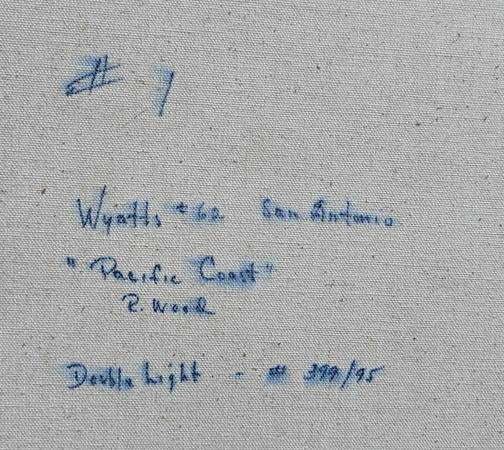 # 7
Wyatts #62 San Antonio
"Pacific Coast"
R. Wood
Double Light - # 399/95